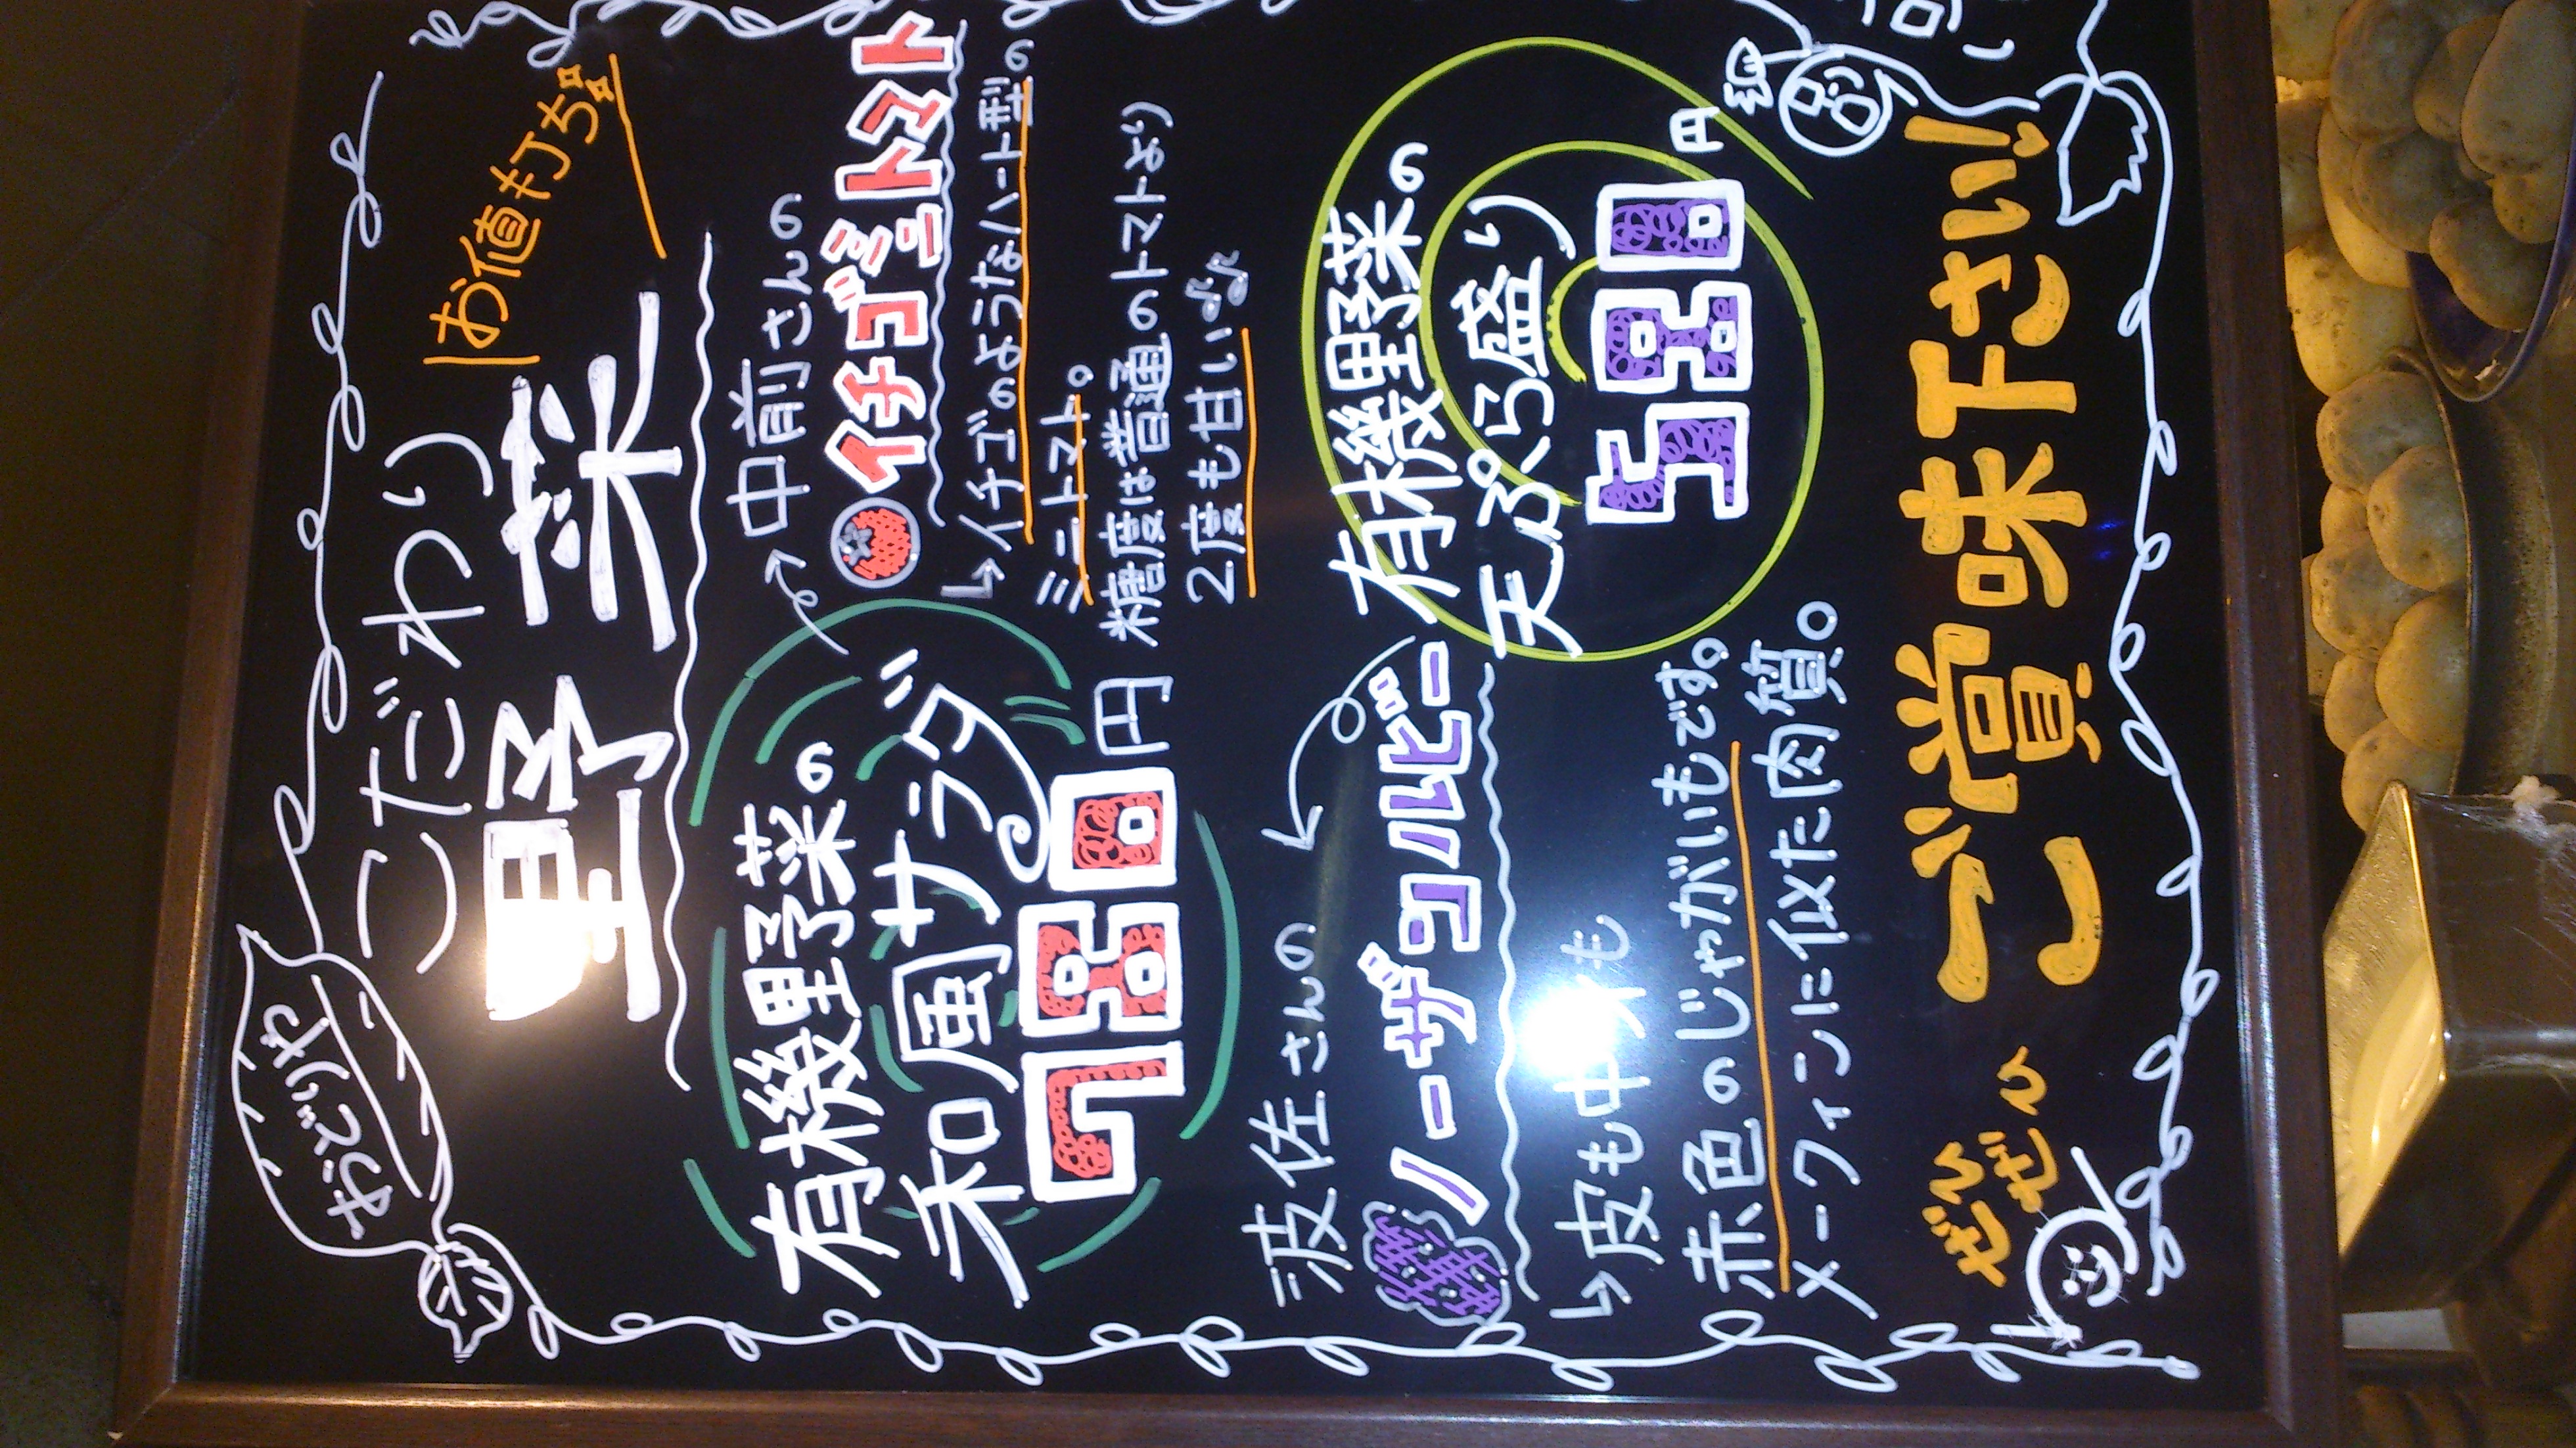 お値打ち
こだわり
野菜
有機野菜の
和風サラダ
780円
中前さんの
イチゴミニトマト
イチゴのようなハート型の
ミニトマト。
糖度は普通のトマトより
2度も甘い♪
波佐さんの
ノーザンルビー
皮も中身も
赤色のじゃがいもです。
メークインに似た肉質。
有機野菜の
天ぷら盛り
580円
ぜひ
ぜひ
ご賞味下さい!